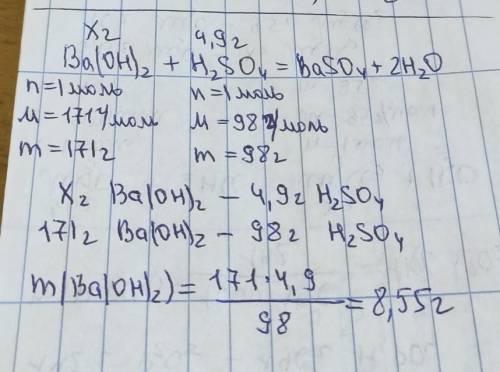 xг 4,9г
Ba(OH)₂ + H₂SO₄ = BaSO₄ + 2H₂O
n = 1 моль n = 1 моль
M = 171 г/моль M = 98 г/моль
m = 171г m = 98г
Xг Ba(OH)₂ – 4,9г H₂SO₄
171г Ba(OH)₂ – 98г H₂SO₄
m(Ba(OH)₂) = 171·4,9 / 98 = 8,55г